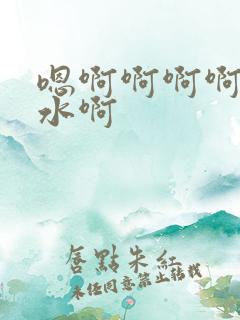 嗯啊啊啊啊
水啊
唇點朱紅
未經同意禁止轉載